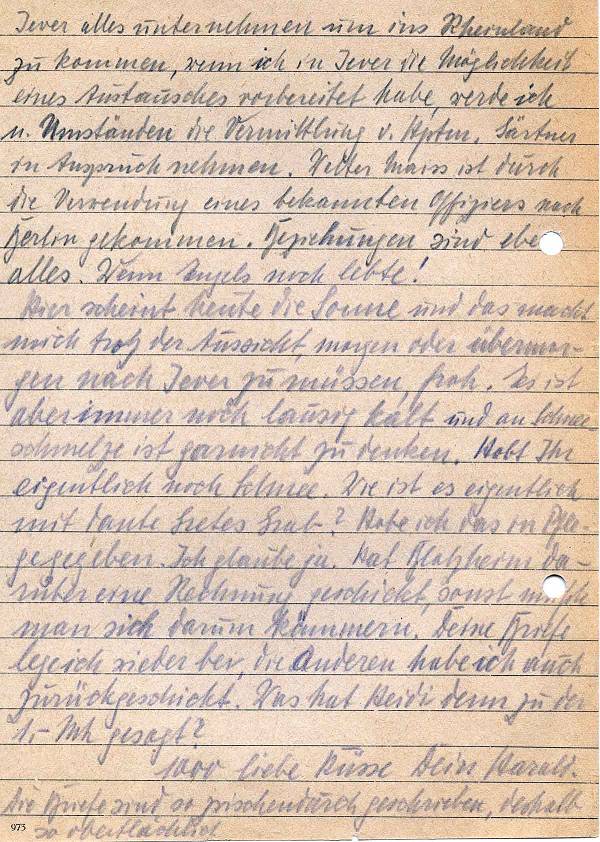 Jever alles unternehmen um ins Rheinland
zu kommen, wenn ich in Jever die Möglichkeit
eines Austausches vorbereitet habe, werde ich
u. Umständen die Vermittlung v. Hptm. Gärtner
in Anspruch nehmen. Vetter Maiss ist durch
die Verwendung eines bekannten Offiziers nach
Berlin gekommen. Beziehungen sind ebe
alles. Wenn Engels noch lebte!
Hier scheint heute die Sonne und das macht
mich trotz der Aussicht, morgen oder übermor-
gen nach Jever zu müssen, froh. Es ist
aber immer noch lausig kalt und an Schnee-
schmelze ist garnicht zu denken. Habt Ihr
eigentlich noch Schnee. Wie ist es eigentlich
mit Tante Gretes Grab? Habe ich das in Pfle-
ge gegeben. Ich glaube ja. Hat Blotzheim da-
rüber eine Rechnung geschickt, sonst müßte
man sich darum kümmern. Deine Briefe
lege ich wieder bei, die Anderen habe ich auch
zurückgeschickt. Was hat Heidi denn zu der
1.- Mk gesagt?
1000 liebe Küsse Dein Harald.
Die Briefe sind so zwischendurch geschrieben, deshalb
so oberflächlich
973